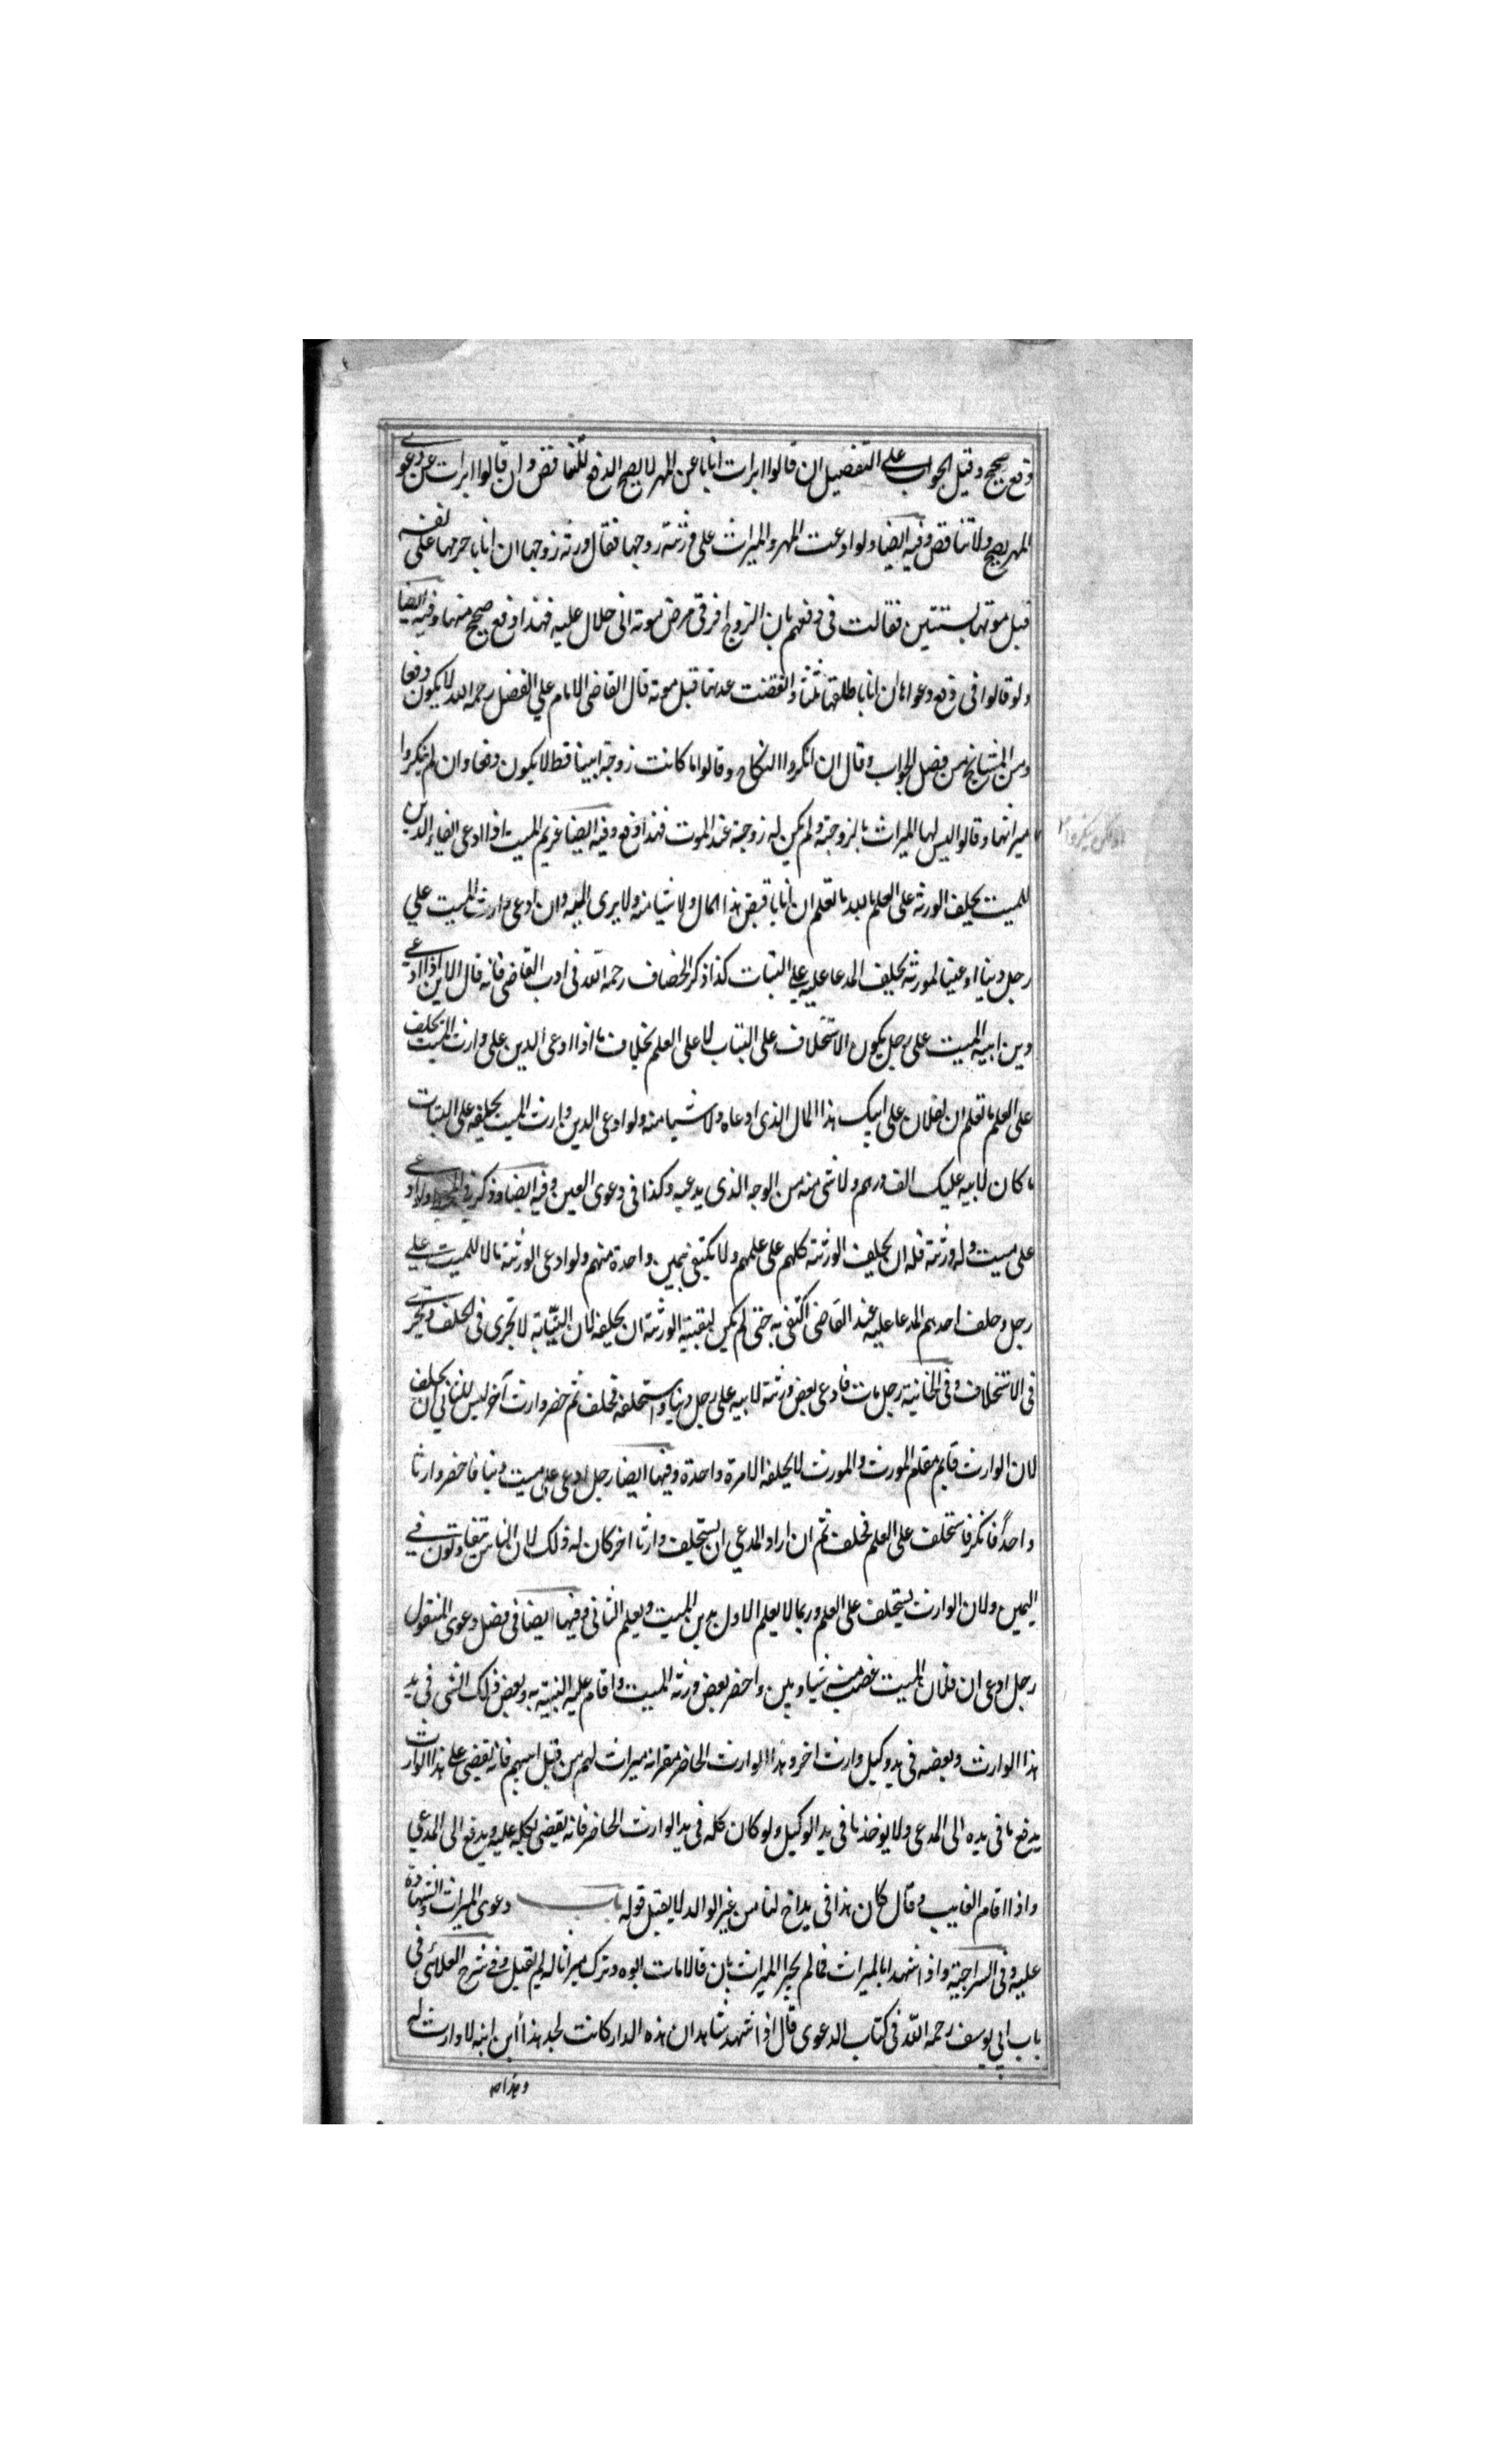 دفع صحيح وقيل الجواب على التفصيل ان قالوا ابرات ابانا عن المهر لا يصح الدفع للتناقض وان قالوا ابرات عن دعوى
المهر يصح ولا تناقض وفيه ايضا ولو ادعت المهر والميراث على ورثة زوجها فقال ورثة زوجها ان ابانا حرمها على نفسه
قبل موتها بسنتين فقالت فى دفعهم بان الزوج اقر فى مرض موته انى حلال عليه فهذا دفع صحيح منها وفيه ايضا
ولو قالوا فى دفع دعواها ان ابانا طلقها ثلثا وانقضت عدتها قبل موته قال القاضى الامام على الفضل رحمه الله لا يكون دفعا
ومن المشايخ من فصل الجواب وقال ان انكروا النكاح وقالوا ما كانت زوجة ابينا قط لا يكون دفعا وان لم ينكروا
ميراثها وقالوا ليس لها الميراث بالزوجية ولم يكن له زوجة عند الموت فهذا دفع وفيه ايضا غريم الميت اذا ادعى ايفاء الدين
للميت يحلف الورثة على العلم بالله ما نعلم ان ابانا قبض هذا المال ولا شيا منه ولا برى اليه وان ادعى وارث الميت على
رجل دينا او عينا لمورثه يحلف المدعا عليه على البتات كذا ذكر الخصاف رحمه الله فى ادب القاضى فانه قال الابن اذا ادعى
دين ابيه الميت على رجل يكون الاستحلاف على البتات لا على العلم بخلاف ما اذا ادعى الدين على وارث الميت يحلف
على العلم ما تعلم ان لفلان على ابيك هذا المال الذى ادعاه ولا شيا منه ولو ادعى الدين وارث الميت يحلفه على البتات
ما كان لابيه عليك الف درهم ولا شى منه من الوجه الذى يدعيه وكذا فى دعوى العين وفيه ايضا وذكر فى ولو ادعى
على ميت وله ورثة فله ان يحلف الورثة كلهم على علمهم ولا يكتفى بيمين واحدة منهم ولو ادعى الورثة مالا للميت على
رجل وحلف احدهم المدعا عليه عند القاضى اكتفى به حتى لم يكن لبقية الورثة ان يحلفه لان النيابة لا تجرى فى الحلف وتجرى
فى الاستحلاف وفى الخانية رجل مات فادعى بعض ورثة لابيه على رجل دينا واستحلفه فحلف ثم حضر وارث آخر ليس للثانى ان يحلف
لان الوارث قايم مقام المورث والمورث لا يحلفه الا مرة واحدة وفيها ايضا رجل ادعى على ميت دينا فاحضر وارثا
واحدًا فانكر فاستحلف على العلم فحلف ثم ان اراد المدعى ان يستحلف وارثا اخر كان له ذلك لان الناس يتفاوتون فى
اليمين ولان الوارث يستحلف على العلم وربما لا يعلم الاول بدين الميت ويعلم الثانى وفيها ايضا فى فصل دعوى المنقول
رجل ادعى ان فلان الميت غصب منه شيا وبين واحضر بعض ورثة الميت واقام عليه البينة به وبعض ذلك الشى فى يد
هذا الوارث وبعضه فى يد وكيل وارث اخر وهذا الوارث الحاضر مقر انه ميراث لهم من قبل ابيهم فانه يقضى على هذا الوارث
يدفع ما فى يده الى المدعى ولا يوخذ ما فى يد الوكيل ولو كان كله فى يد الوارث الحاضر فانه يقضى بكله عليه ويدفع الى المدعى
واذا اقام الغايب وقال كان هذا فى يد اخ لنا من غير الوالد لا يقبل قوله باب دعوى الميراث والشهادة
عليه وفى السراجية واذا شهدا بالميراث فما لم يجرا الميراث بان قالا مات ابوه وترك ميراثا له لم يقبل وفى شرح العلائى فى
باب ابى يوسف رحمه الله فى كتاب الدعوى قال اذا شهد شاهدان هذه الدار كانت لجد هذا ابن ابنه لا وارث له